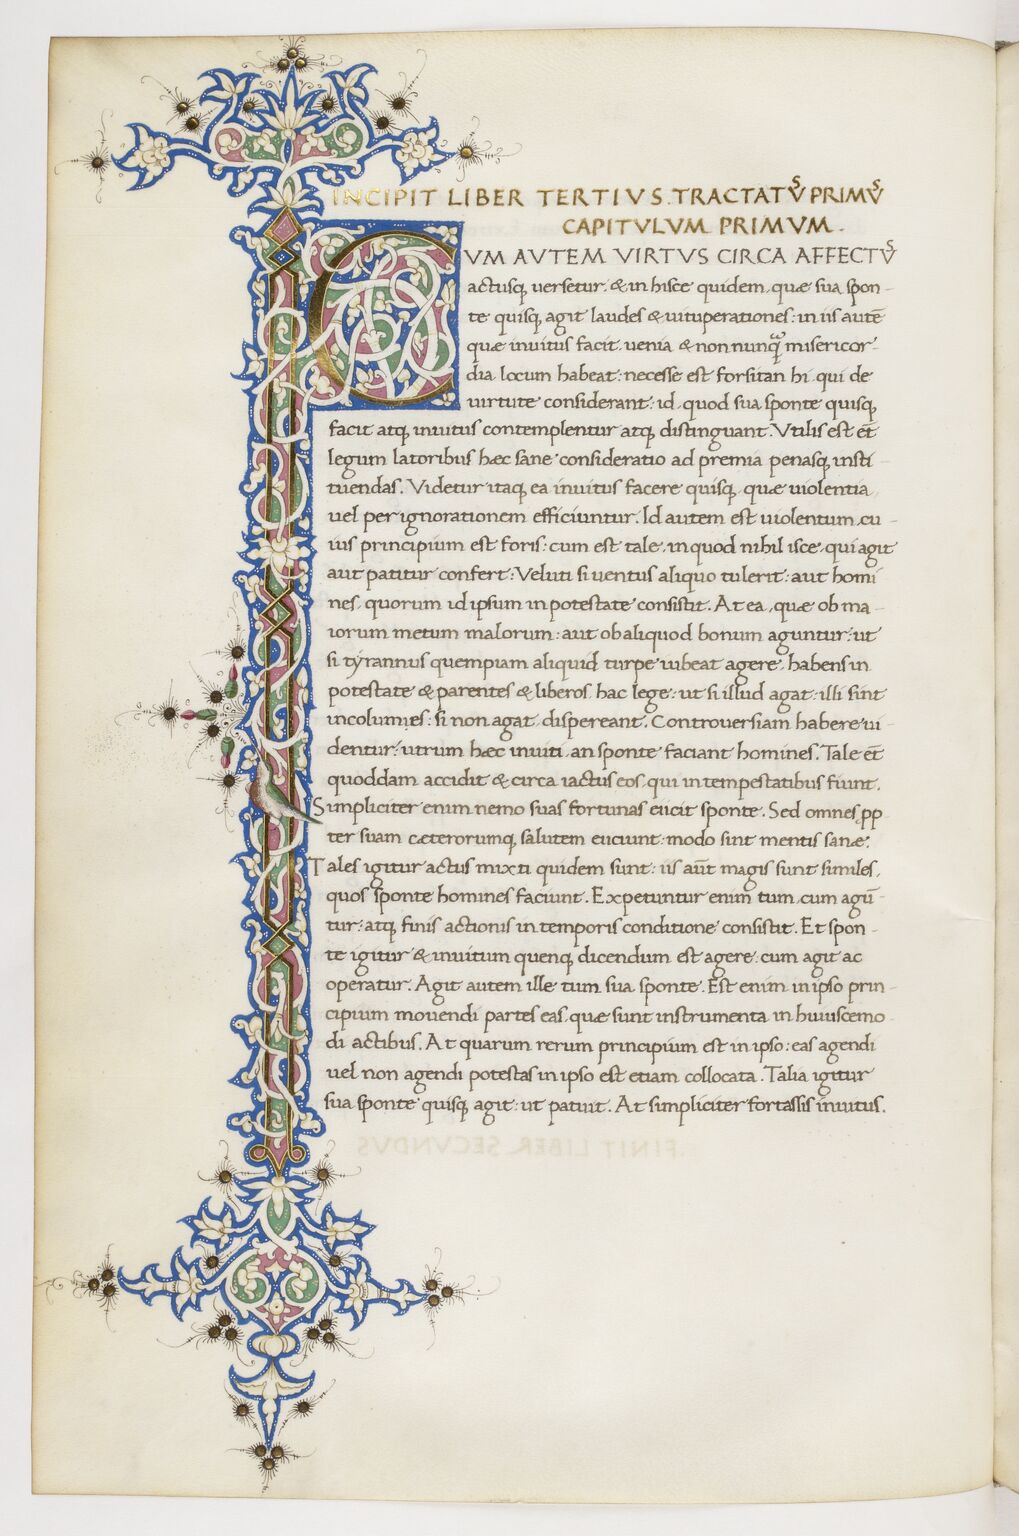 INCIPIT LIBER TERTIVS. TRACTATVˢ PRIMVˢ
CAPITVLVM PRIMVM.
CVM AVTEM VIRTVS CIRCA AFFECTVˢ
actusq; uersetur. & in hisce quidem, quæ sua spon-
te quisq; agit laudes & uituperationes: in iis autē
quæ inuitus facit, uenia & non nunq̃ misericor-
dia locum habeat: necesse est forsitan hi, qui de
uirtute considerant: id, quod sua sponte quisq;
facit atq; inuitus contemplentur atq; distinguant. Vtilis est et̄
legum latoribus hæc sane consideratio ad premia penasq; insti
tuendas. Videtur itaq; ea inuitus facere quisq; quæ uiolentia,
uel per ignorationem efficiuntur. Id autem est uiolentum, cu-
ius principium est foris: cum est tale, in quod nihil is ce, qui agit
aut patitur confert: Veluti si uentus aliquo tulerit: aut homi
nes, quorum id ipsum in potestate consistit. At ea, quæ ob ma-
iorum metum malorum: aut ob aliquod bonum aguntur: ut
si tyrannus quempiam aliquid turpe iubeat agere, habens in
potestate & parentes & liberos, hac lege: ut si illud agat: illi sint
incolumes: si non agat, dispereant. Controuersiam habere ui
dentur, utrum hæc inuiti, an sponte faciant homines. Tale et̄
quoddam accidit & circa iactus eos, qui in tempestatibus fiunt.
Simpliciter enim nemo suas fortunas eiicit sponte. Sed omnes, pp
ter suam cæterorumq; salutem eiiciunt: modo sint mentis sanæ.
Tales igitur actus mixti quidem sunt: iis aūt magis sunt similes,
quos sponte homines faciunt. Expetuntur enim tum, cum agū-
tur: atq; finis actionis in temporis conditione consistit. Et spon-
te igitur & inuitum quenq; dicendum est agere: cum agit ac
operatur. Agit autem ille tum sua sponte. Est enim in ipso prin-
cipium mouendi partes eas, quæ sunt instrumenta in huiuscemo
di actibus. At quarum rerum principium est in ipso: eas agendi
uel non agendi potestas in ipso est etiam collocata. Talia igitur
sua sponte quisq; agit: ut patuit. At simpliciter fortassis inuitus.